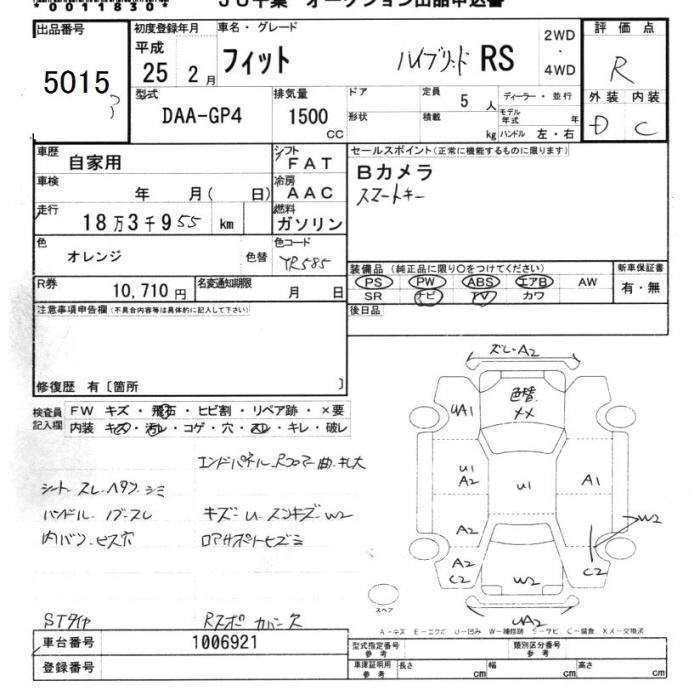 *0011830*
JU千葉 オークション出品申込書
出品番号 初度登録年月 車名・グレード 2WD・4WD 評価点
5015
平成 25 2月 フィット ハイブリッド RS R
型式 DAA-GP4 排気量 1500 CC ドア 形状 定員 5 人 積載 kg ディーラー・並行 モデル年式 年 ハンドル 左・右 外装 D 内装 C
車歴 自家用 シフト FAT セールスポイント(正常に機能するものに限ります)
Bカメラ
スマートキー
車検 年 月( 日) 冷房 AAC
走行 18万3千955 km 燃料 ガソリン
色 オレンジ 色替 色コード YR585
装備品(純正品に限り○をつけてください) 新車保証書
PS PW ABS エアB AW 有・無
SR ナビ TV カワ
R券 10,710円 名変通知期限 月 日
後日品
注意事項申告欄(不具合内容等は具体的に記入して下さい)
修復歴 有〔箇所 〕
検査員記入欄 FW キズ・飛石・ヒビ割・リペア跡・×要
内装 キズ・汚レ・コゲ・穴・スレ・キレ・破レ
エンドパネル、Rフロアー曲、キレ大
シート スレ、ヘタリ、シミ
ハンドル、ノブ-スレ キズ-U、スンキズ-W2
内バン-ビス穴 ロアサポートヒズミ
STタイヤ Rスポ カバー欠
ズレ、A2
色替
XX
UA1
U1
A2
U1
A1
A2
W2
A2
C2
W2
C2
UA2
スペア
A-キズ E-エクボ U-凹み W-補修跡 S-サビ C-腐食 XX-交換済
車台番号 1006921 型式指定番号 参考 類別区分番号 参考
登録番号 車庫証明用 参考 長さ cm 幅 cm 高さ cm